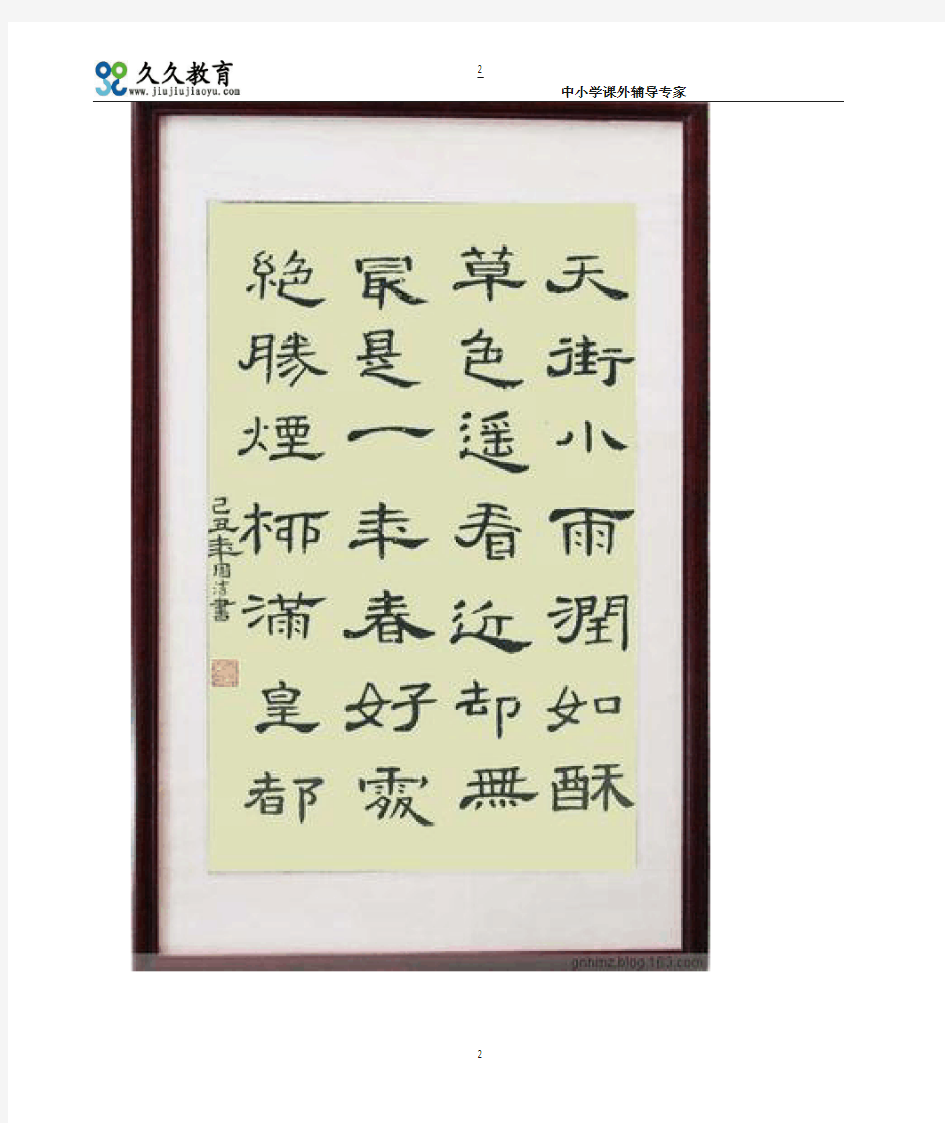 久久教育
www.jiujiujiaoyu.com
2
中小学课外辅导专家
天街小雨潤如酥
草色遥看近却無
最是一年春好處
絶勝煙柳滿皇都
己丑年國書
gnhmz.blog.163.com
2